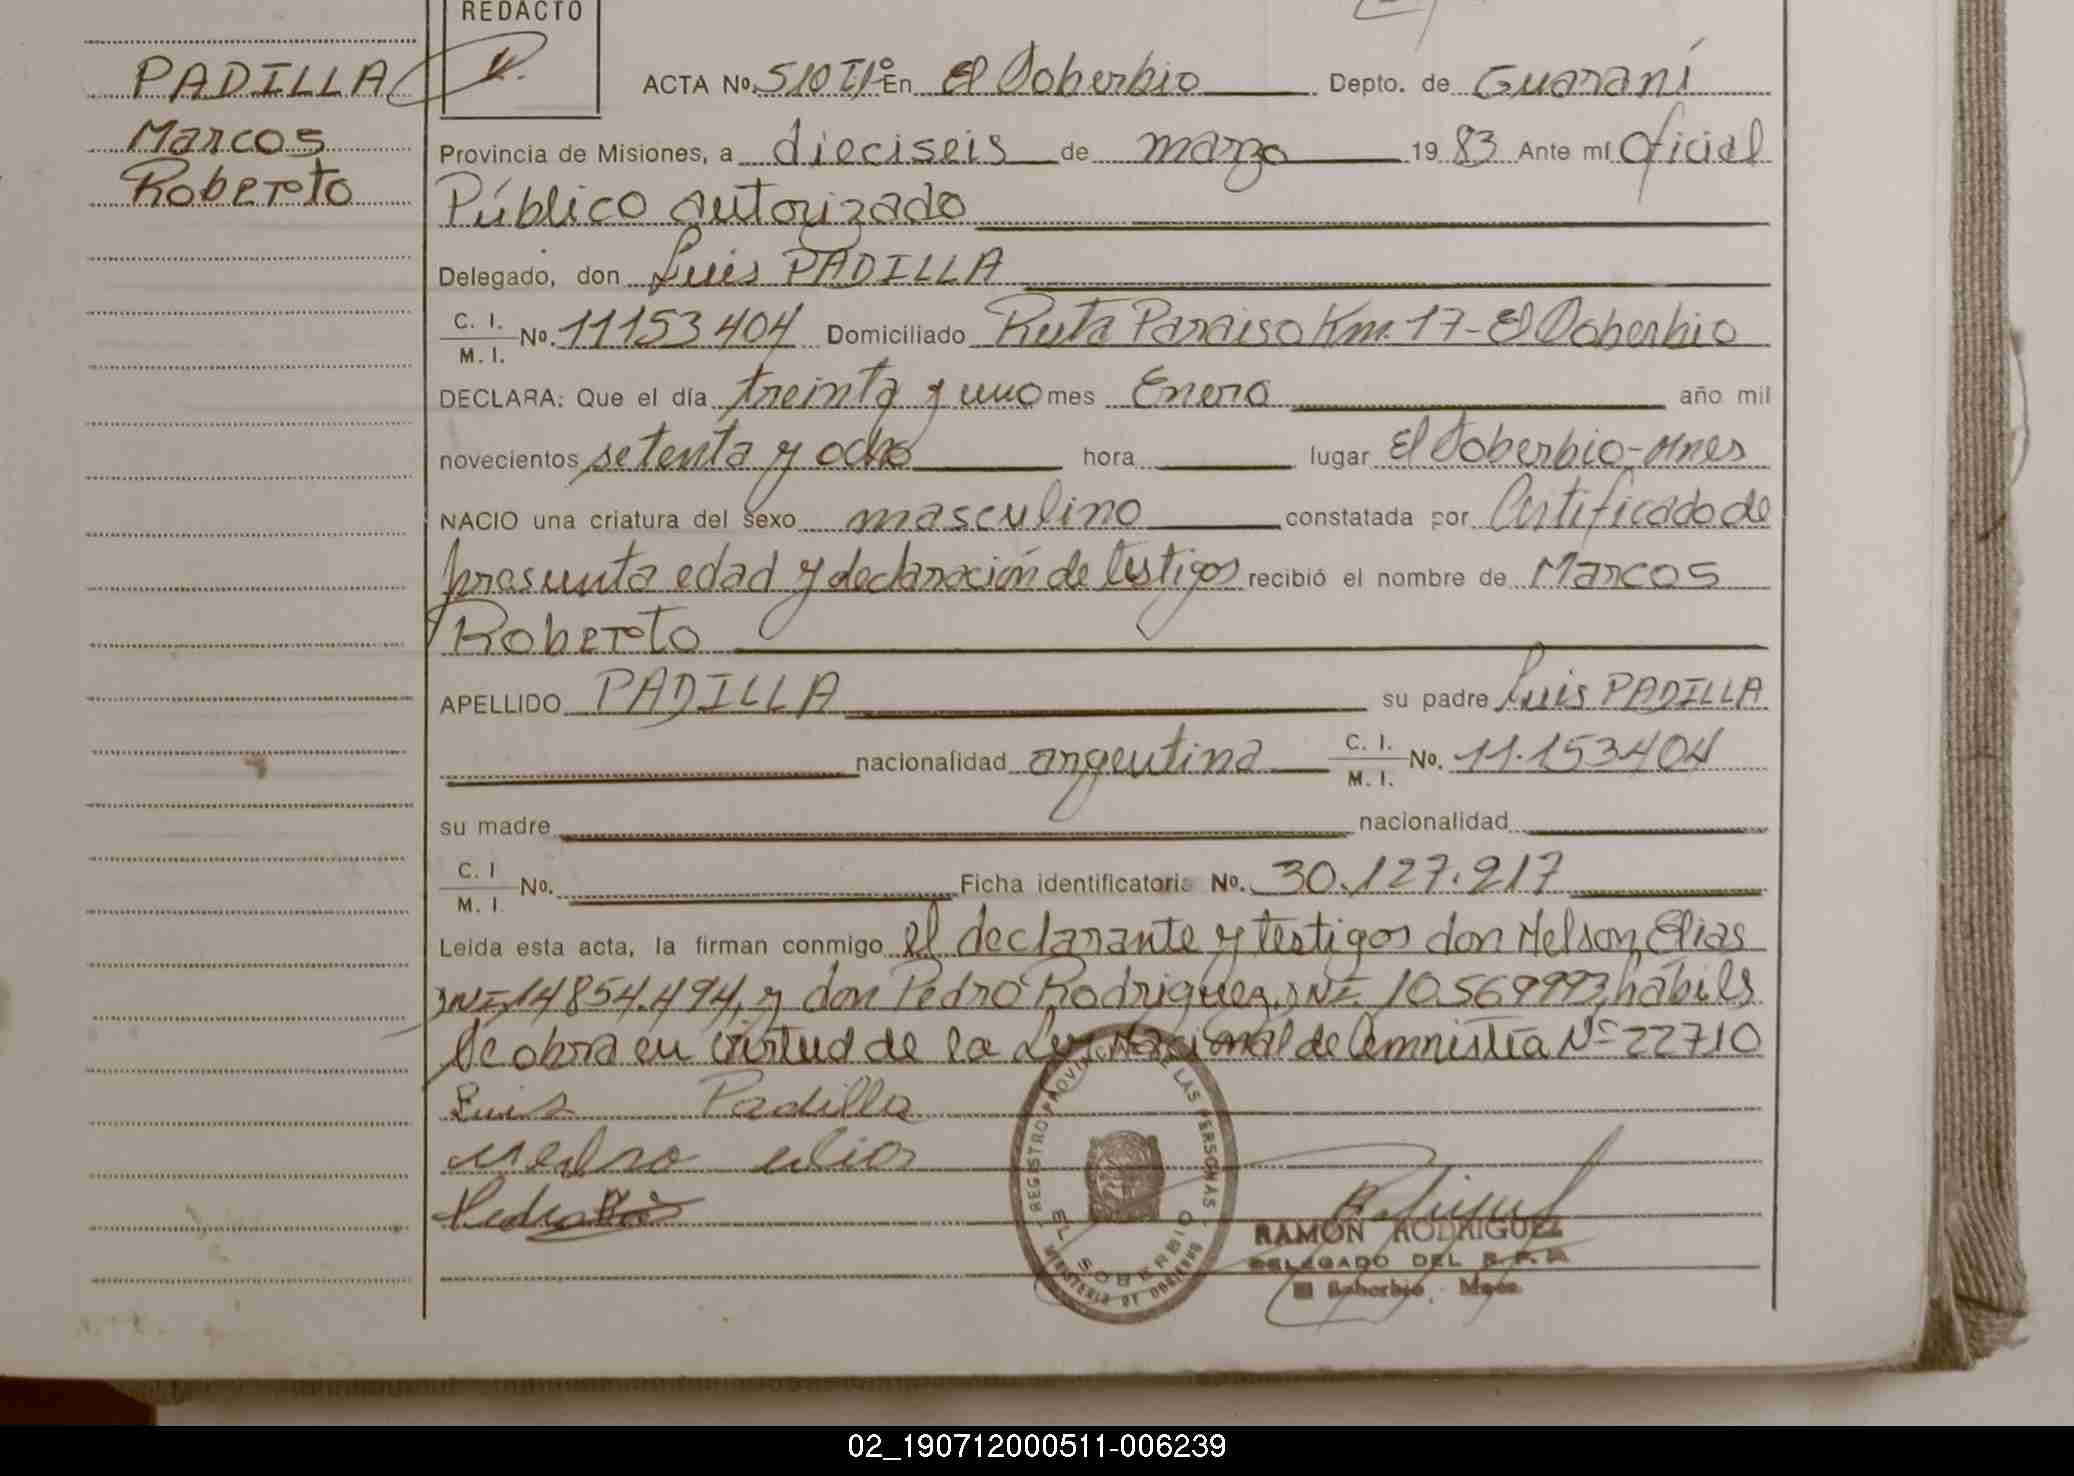 REDACTO
PADILLA
Marcos
Roberto
ACTA No. 510 Tº Iº En El Soberbio Depto. de Guaraní
Provincia de Misiones, a dieciseis de marzo 19 83 Ante mí Oficial
Público autorizado
Delegado, don Luis PADILLA
C. I.
M. I. No. 11153404 Domiciliado Ruta Paraiso Km. 17 - El Soberbio
DECLARA: Que el día treinta y uno mes Enero año mil
novecientos setenta y ocho hora lugar El Soberbio - Mnes
NACIO una criatura del sexo masculino constatada por Certificado de
presunta edad y declaración de testigos recibió el nombre de Marcos
Roberto
APELLIDO PADILLA su padre Luis PADILLA
nacionalidad argentina C. I.
M. I. No. 11.153404
su madre nacionalidad
C. I
M. I. No. Ficha identificatoria No. 30.127.217
Leída esta acta, la firman conmigo el declarante y testigos don Nelson, Elias
DNI 14854.494, y don Pedro Rodriguez, DNI 10569993, hábiles
Se obra en virtud de la Ley Nacional de Amnistía Nº 22710
Luis Padilla
Nelson elias
Pedro
REGISTRO PROVINCIAL DE LAS PERSONAS
EL SOBERBIO
MINISTERIO DE GOBIERNO
RAMON RODRIGUEZ
DELEGADO DEL R. P. P.
El Soberbio, Mnes.
02_190712000511-006239